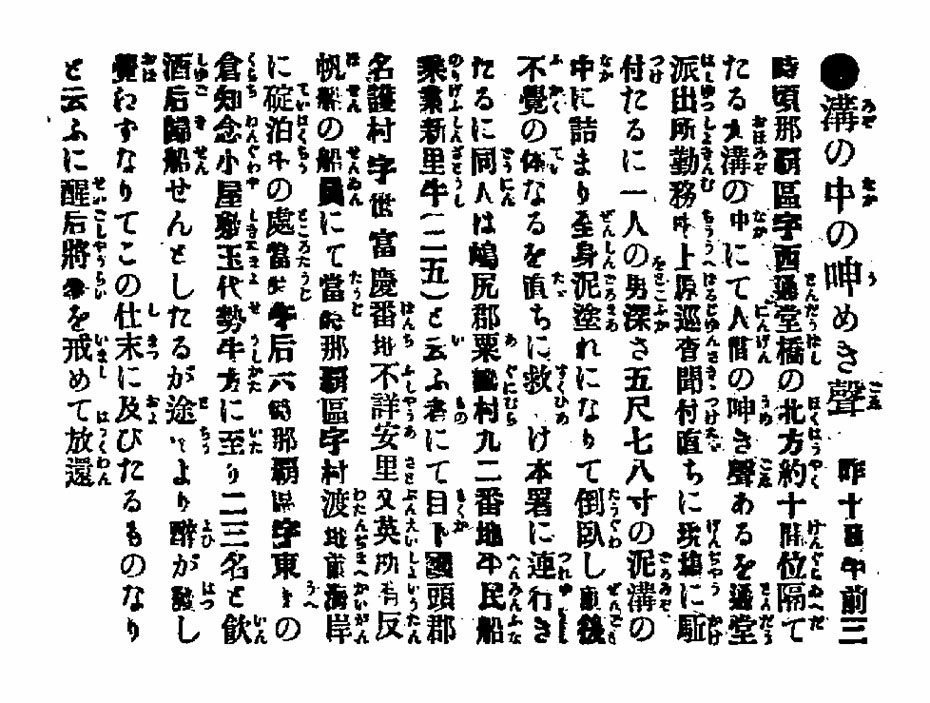 ●溝の中の呻めき聲　昨十日午前三
時頃那覇區字西通堂橋の北方約十間位隔て
たる大溝の中にて人間の呻き聲あるを通堂
派出所勤務 上原巡査聞付直ちに現塲に駈
付たるに一人の男深さ五尺七八寸の泥溝の
中に詰まり全身泥塗れになりて倒臥し前後
不覺の体なるを直ちに救 け本署に連行き
たるに同人は鳩尻郡粟國村九二番地平民船
乘業新里牛(二五)と云ふ者にて目下國頭郡
名護村字世富慶番地不詳安里文英所有反
帆船の船員にて當時那覇區字村渡地前海岸
に碇泊中の處當日午后六時那覇區字東 の
倉知念小屋敷玉代勢牛方に至り二三名と飮
酒后歸船せんとしたるが途中より醉が發し
覺ねずなりてこの仕末に及びたるものなり
と云ふに醒后將來を戒めて放還